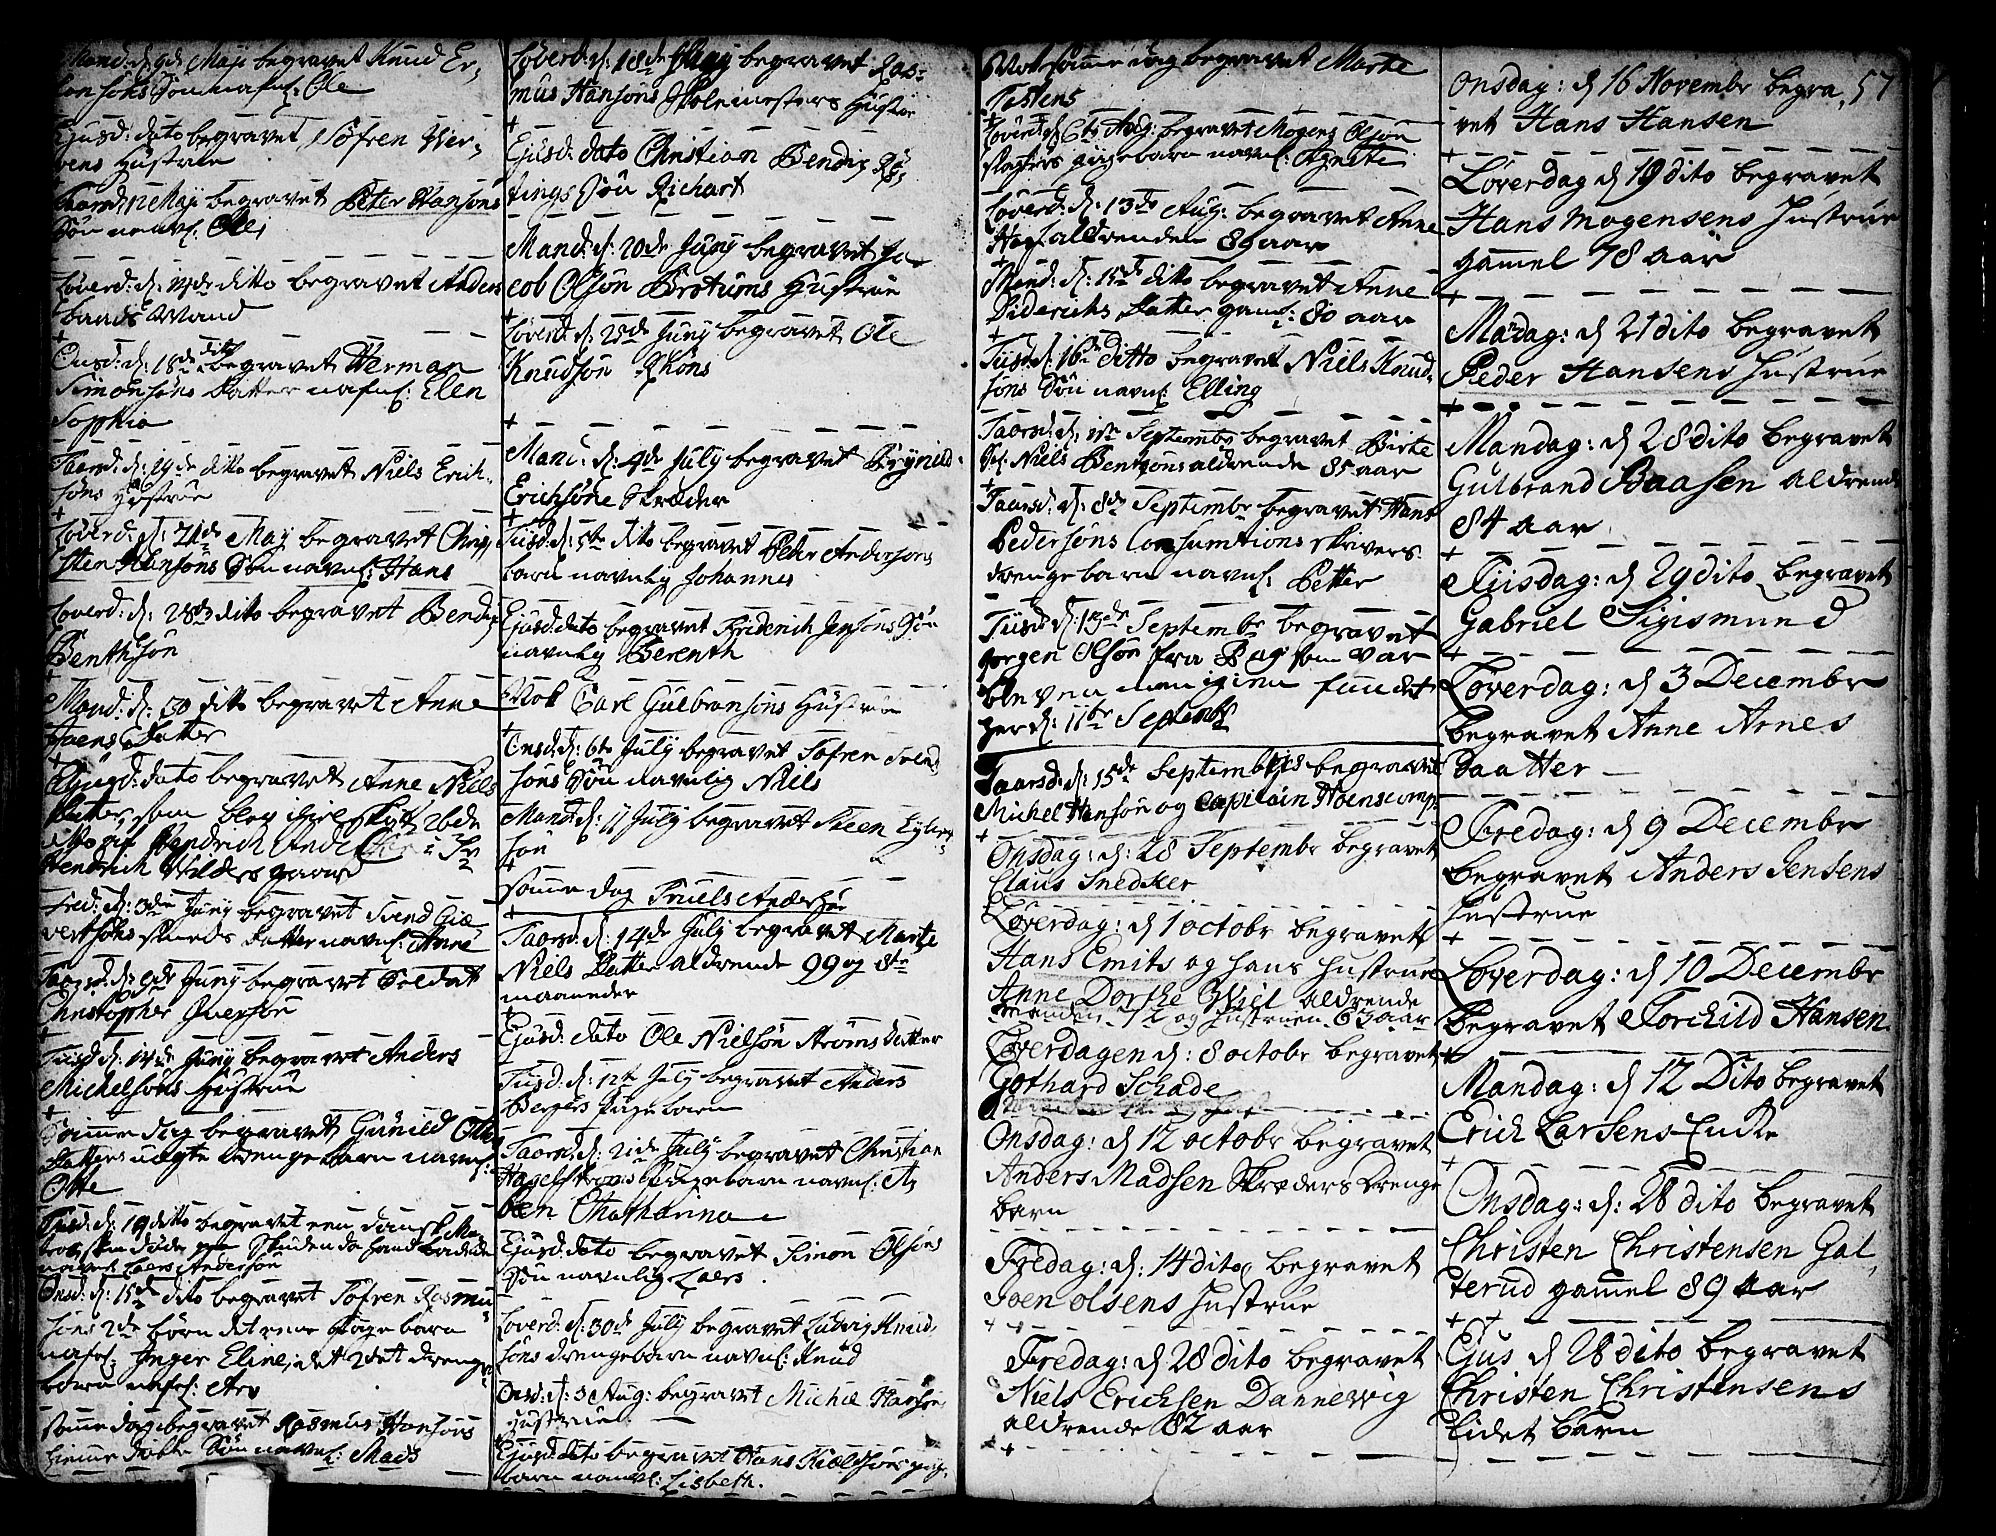 Mand: d: 9de Maji begravet Knud Er,
sønnafnl: Ole
Ejusd: dato begravet Søfren Wer,
vens Hustrue
Taarsd: 12 Maji begravet Peter Hansøns
Søn navnl: Ole
Løverd: d: 14de ditto begravet Anders
Mand
Onsd: d: 18de dito begravet Herman
Simonsøns datter nafnl: Elen
Sophia
Taarsd: d: 19de ditto begravet Niels Erich,
søns Hustrue
Løverd: d: 21de May begravet Chri,
sten Hansøns Søn navnl: Hans
Løverd: d: 28de dito begravet Bendix
Benthsøn
Mand: d: 30 ditto begravet Anne
Joens datter
Ejusd: dato begravet Anne Niels
datter, som blev ihielskutt 26de
Hendrich
Hendrich Wilders gaard
Fred: d: 3de Juny begravet Svend
smeds datter navnl: Anne
Taarsd: d: 9de Juny begravet Soldat
Christopher Iversøn
Tiisd: d: 14de Juny begravet Anders
Michelsøns Hustrue
Samme dag begravet Gunild Ols
datters uægte drengebarn navnl:
Otte
begravet een dansk Ma,
tros, som døde
navnl: Laers Andersøn
Onsd: d: 15de dito begravet Søfren Rasmu
søns 2de børn det eene Pigebarn
nafnl: Inger Eline, det 2det drenge
barn nafnl: Arv
samme dag begravet Rasmus Hansøns
Søn navnl: Mads
Løverd: d: 18de Juny begravet Ras,
mus Hansøns Skolemesters Hustrue
Ejusd: dato Christian Bendix
tings Søn Richart
Mand: d: 20de Juny begravet Ja,
cob Olsøn Brotums Hustrue
Løverd: d: 25de Juny begravet Ole
Knudsøn Rhøns
Mand: d: 4de July begravet Brynild
Erichsøne Skræder
Tiisd: d: 5te dito begravet Pehr Andersøns
barn navnlig Johannes
Ejusd: dato begravet Friderich Jensøns Søn
navnlig Berenth
Nok Carl Gulbransøns Hustrue
Onsd: d: 6te July begravet Søfren Svend
søns Søn navnlig Niels
Mand: d: 11 July begravet Steen Eylert
søn
samme dag Truels Andersøn
Taarsd: d: 14de July begravet Marte
Niels datter aldrende 99 og 8te
maaneder
Ejusd: dato Ole Nielsøn Strøms datter
Tiisd: d: 12te July begravet Anders
Bergers Pigebarn
Taarsd: d: 21de July begravet Christian
Hagelstrøms Pigebarn navnl:
Chatharina
Ejusd: dato begravet Simon Olsøns
Søn navnlig Laers
Løverd: d: 30de July begravet Ludvig Knud,
søns drengebarn navnl: Knud
Onsd: d: 3 Aug: begravet Michel Hansøns
Hustrue
Ejusd: dato begravet Hans Kieldsøns pige
barn navnl: Lisbeth.
Nok samme dag begravet Marte
Tostens
Løverd: d: 6te Aug: begravet Mogens Olsøn
Slagters pigebarn navnl: Agnete
Løverd: d: 13de Aug: begravet Anne
aldrenden 89 aar
Mand: d: 15de ditto begravet Anne
Diderichs datter gaml: 80 aar
Tiisd: d: 16de ditto begravet Niels Knud,
søns Søn navnl: Elling
Taarsd: d: 1te Septembr begravet Birte
Sl: Niels Bentzøns aldrende 85 aar
Taarsd: d: 8de Septembr begravet Hans
Pedersøns Consumtions skrivers
drengebarn navnl: Petter
Tiisd: d: 13de Septembr begravet
Jørgen Olsøn fra Bag som var
bleven funden
her d: 11te Septembr
Taarsd: d: 15de Septembris begravet
Michel Hansøn og Capitain Hoenscomp:
Onsdag: d: 28 Septembr begravet
Claus Snedker
Løverdag: d 1 octobr begravett
Hans Emits og hans Hustrue
Anne Dorthe Wiel aldrende
manden 72 og Hustruen 63 aar
Løverdagen d: 8 octobr begravet
Gothard Schade
Onsdag: d 12 octobr begravet
Anders Madsen Skræders Drenge
barn
Fredag: d: 14 dito begravet
Joen olsens Hustrue
Fredag: d 28 dito begravet
Niels Erichsen Dannewig
aldrende 82 aar
57
Onsdag: d 16 Novembr begra,
vet Hans Hansen
Løverdag d 19 dito begravet
Hans Mogensens Hustrue
gamel 78 aar
Mandag: d 21 dito begravet
Peder Hansens Hustrue
Mandag: d 28 dito begravet
Gulbrand Baasen aldrende
84 aar
Tiisdag: d 29 dito begravet
Gabriel Sigismund
Løverdag: d 3 Decembr
begravet Anne Arnes
Daatter
Fredag: d 9 Decembr
begravet Anders Jensens
Hustrue
Løverdag: d 10 Decembr
begravet Torchild Hansen
Mandag: d 12 Dito begravet
Erich Larsens Encke
Onsdag: d: 28 dito begravet
Christen Christensen Gal,
terud gamel 89 aar
Ejus d 28 dito begravet
Christen Christensens
Lidet barn